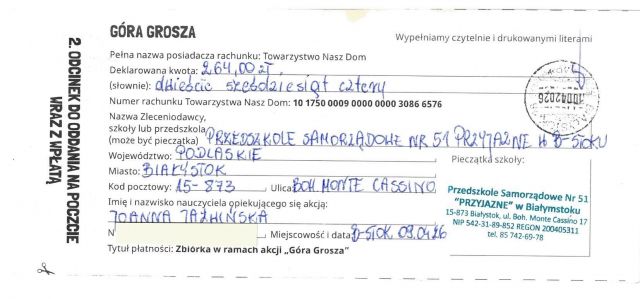 GÓRA GROSZA
Wypełniamy czytelnie i drukowanymi literami
2. ODCINEK DO ODDANIA NA POCZCIE
WRAZ Z WPŁATĄ
Pełna nazwa posiadacza rachunku: Towarzystwo Nasz Dom
Deklarowana kwota: 264,00 zł.
(słownie): dwieście sześćdziesiąt cztery
Numer rachunku Towarzystwa Nasz Dom: 10 1750 0009 0000 0000 3086 6576
10042026
Nazwa Zleceniodawcy,
szkoły lub przedszkola
(może być pieczątka) PRZEDSZKOLE SAMORZĄDOWE NR 51 PRZYJAZNE W B-STOKU
Województwo: PODLASKIE
Pieczątka szkoły:
Miasto: BIAŁYSTOK
Kod pocztowy: 15-873 Ulica BOH. MONTE CASSINO
Przedszkole Samorządowe Nr 51
"PRZYJAZNE" w Białymstoku
15-873 Białystok, ul. Boh. Monte Cassino 17
NIP 542-31-89-852 REGON 200405311
tel. 85 742-69-78
Imię i nazwisko nauczyciela opiekującego się akcją:
JOANNA JAŹWIŃSKA
N
Miejscowość i data B-STOK 09.04.26
Tytuł płatności: Zbiórka w ramach akcji „Góra Grosza"